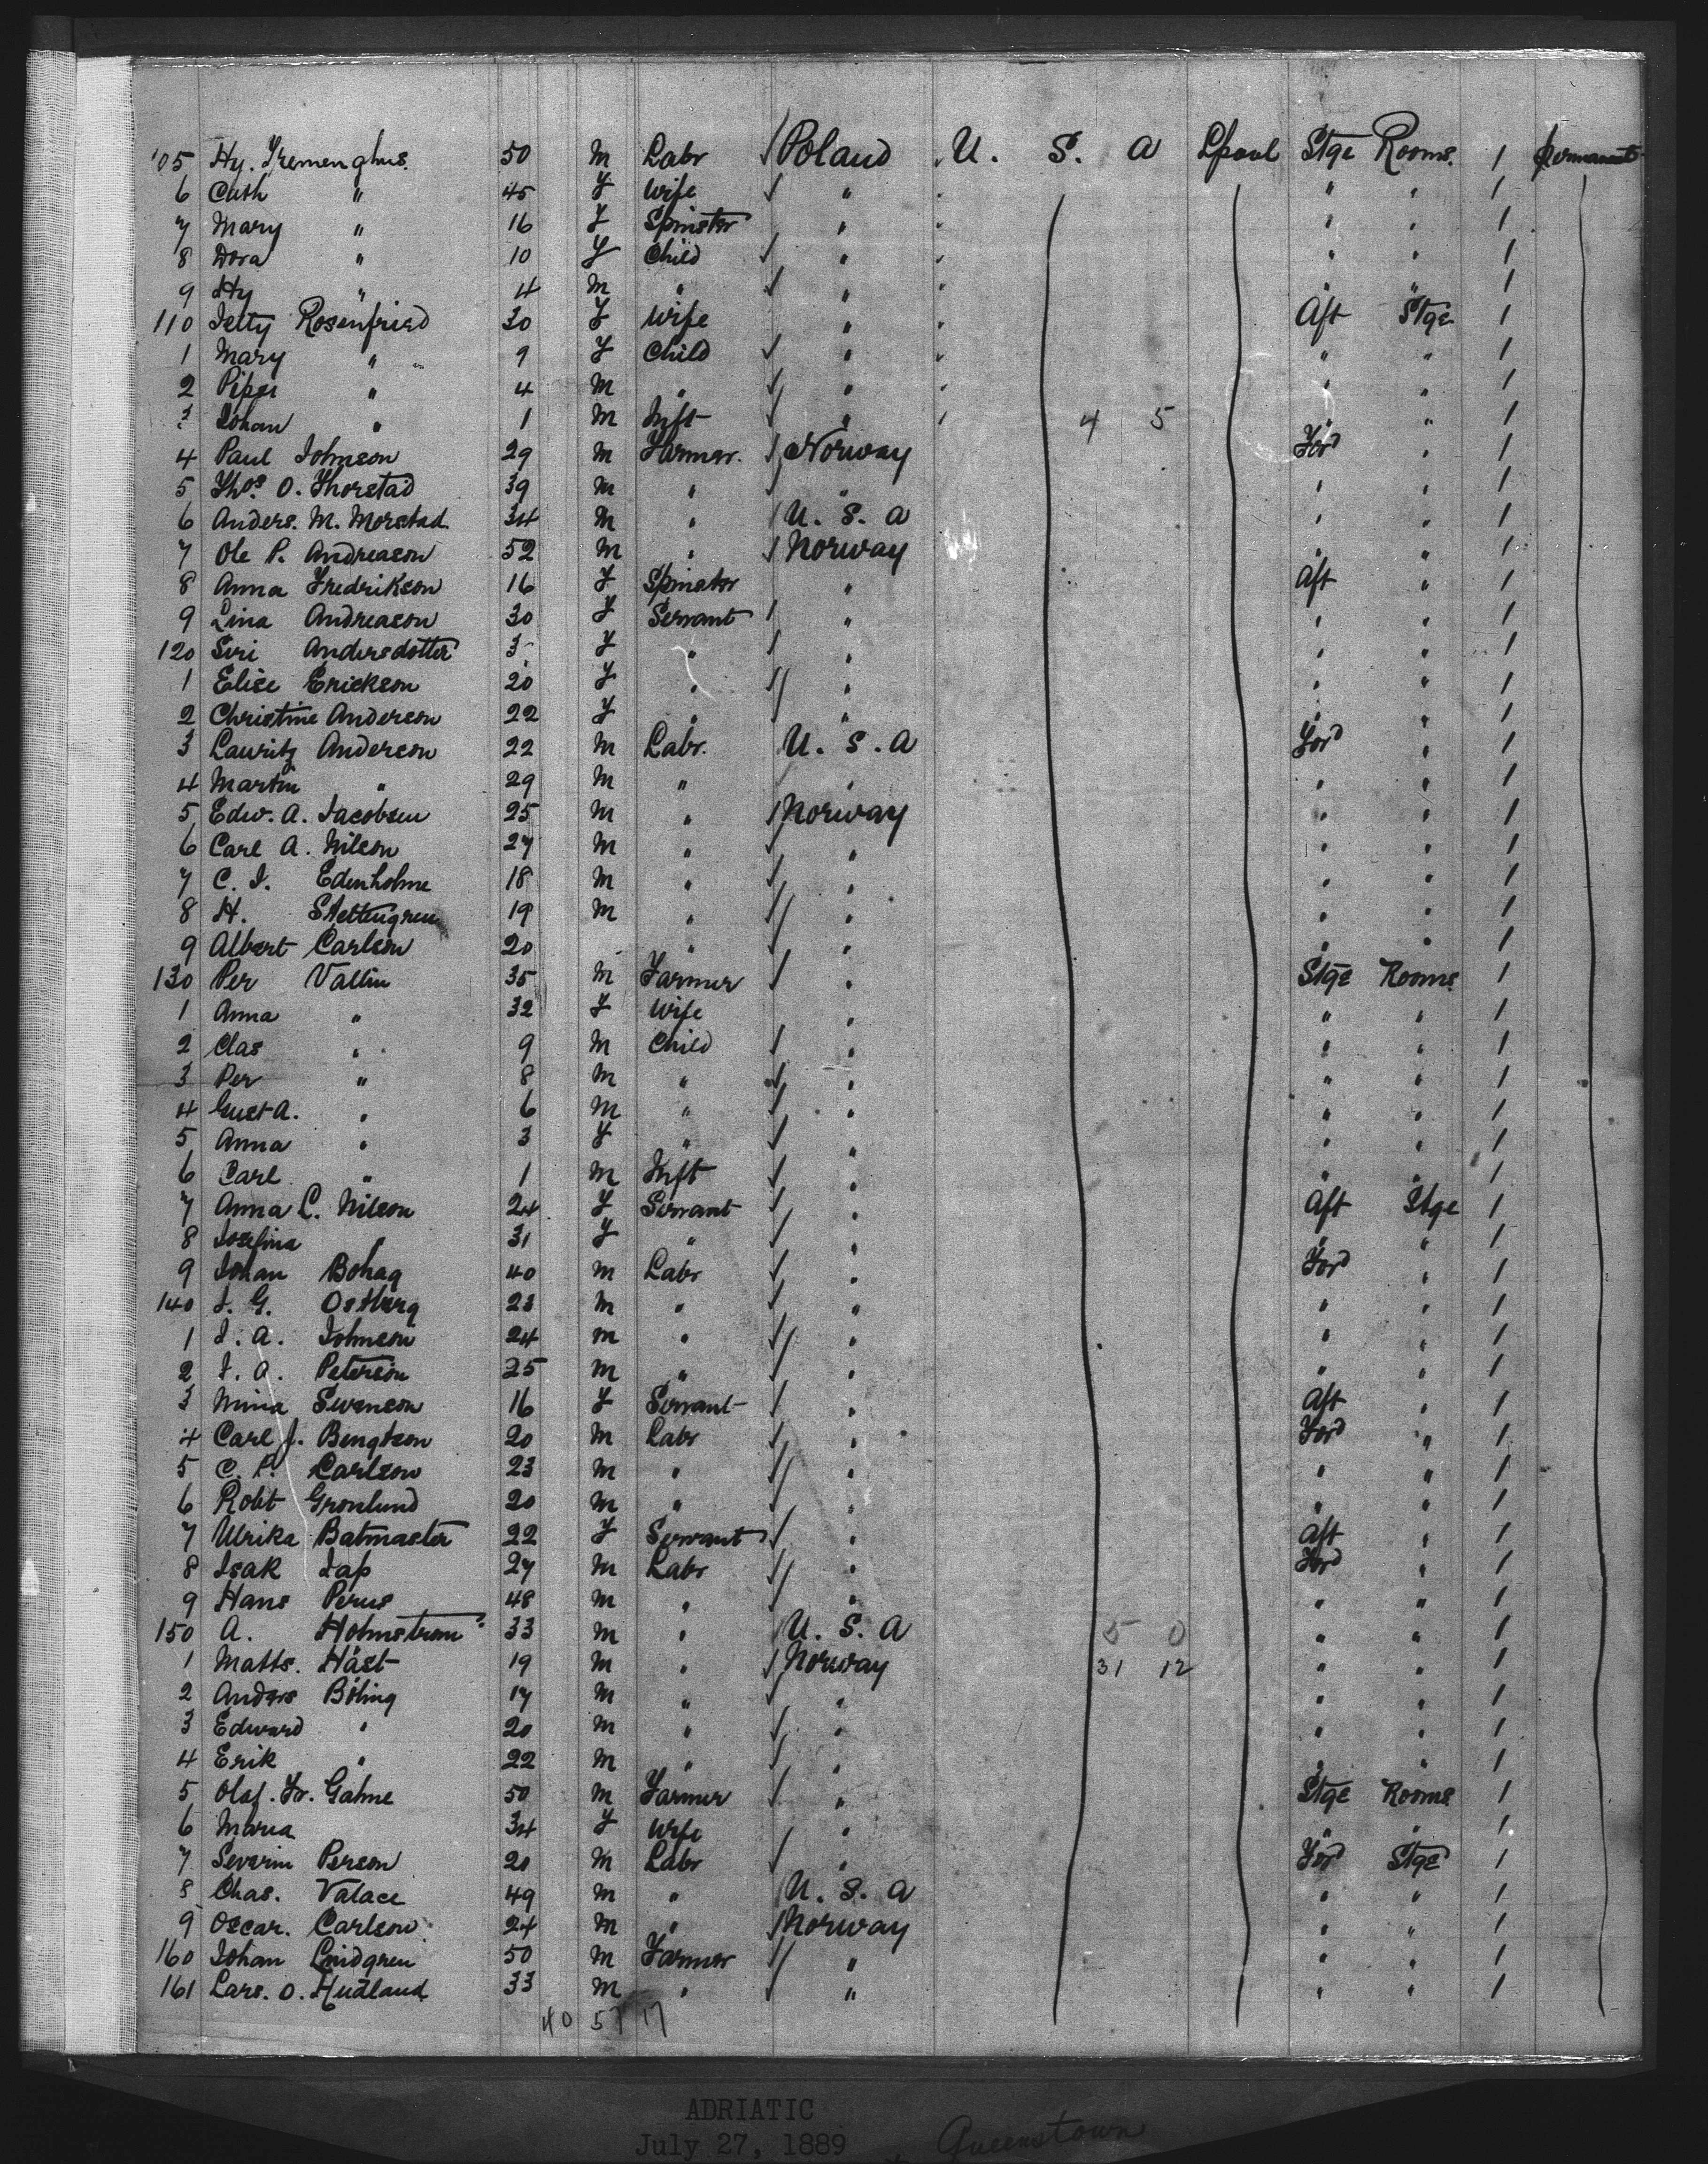 105 Hy. Tremenghus. 50 M Labr Poland U. S. A Lpool Stge Rooms. 1 permanent
6 Cath " 45 F Wife " " " 1
7 Mary " 16 F Spinster " " " 1
8 Dora " 10 F Child " " " 1
9 Hy " 4 M " " " " 1
110 Jetty Rosenfried 30 F Wife " Aft Stge 1
1 Mary " 9 F Child " " " 1
2 Piper " 4 M " " " " 1
3 Johan " 1 M Inft " 4 5 " " 1
4 Paul Johnson 29 M Farmer. Norway Ford " 1
5 Thos. O. Thorstad 39 M " " " " 1
6 Anders. M. Morstad 34 M " U. S. A " " 1
7 Ole P. Andreason 52 M " Norway " " 1
8 Anna Fredrikson 16 F Spinster " Aft " 1
9 Lina Andreason 30 F Servant " " " 1
120 Siri Andersdotter 3 F " " " " 1
1 Elise Erickson 20 F " " " " 1
2 Christine Anderson 22 F " " " " 1
3 Lauritz Anderson 22 M Labr. U. S. A Ford " 1
4 Martin " 29 M " " " " 1
5 Edw. A. Jacobsen 25 M " Norway " " 1
6 Carl A. Nilson 27 M " " " " 1
7 C. J. Edenholme 18 M " " " " 1
8 H. Stettengren 19 M " " " " 1
9 Albert Carlson 20 " " " " 1
130 Per Vallin 35 M Farmer " Stge Rooms. 1
1 Anna " 32 F Wife " " " 1
2 Clas " 9 M Child " " " 1
3 Per " 8 M " " " " 1
4 Gust A. " 6 M " " " " 1
5 Anna " 3 F " " " " 1
6 Carl " 1 M Inft " " " 1
7 Anna C. Nilson 24 F Servant " Aft Stge 1
8 Josefina " 31 F " " " " 1
9 Johan Bohag 40 M Labr " Ford " 1
140 J. G. Ostberg 23 M " " " " 1
1 J. A. Johnson 24 M " " " " 1
2 J. A. Peterson 25 M " " " " 1
3 Mina Swenson 16 F Servant " Aft " 1
4 Carl J. Bengtson 20 M Labr " Ford " 1
5 C. P. Carlson 23 M " " " " 1
6 Robt Gronlund 20 M " " " " 1
7 Ulrika Batmaster 22 F Servant " Aft " 1
8 Isak Jap 27 M Labr " Ford " 1
9 Hans Perus 48 M " " " " 1
150 A. Holmstrom 33 M " U. S. A 5 0 " " 1
1 Matts. Häst 19 M " Norway 31 12 " " 1
2 Anders Böling 17 M " " " " 1
3 Edward " 20 M " " " " 1
4 Erik " 22 M " " " " 1
5 Olof. Fr. Gahne 50 M Farmer " Stge Rooms 1
6 Maria 34 F Wife " " " 1
7 Severin Person 20 M Labr " Ford Stge 1
8 Chas. Valace 49 M " U. S. A " " 1
9 Oscar. Carlson. 24 M " Norway " " 1
160 Johan Lindgren 50 M Farmer " " " 1
161 Lars. O. Hudland 33 M " " " " 1
40 57 17
ADRIATIC
July 27, 1889 Queenstown